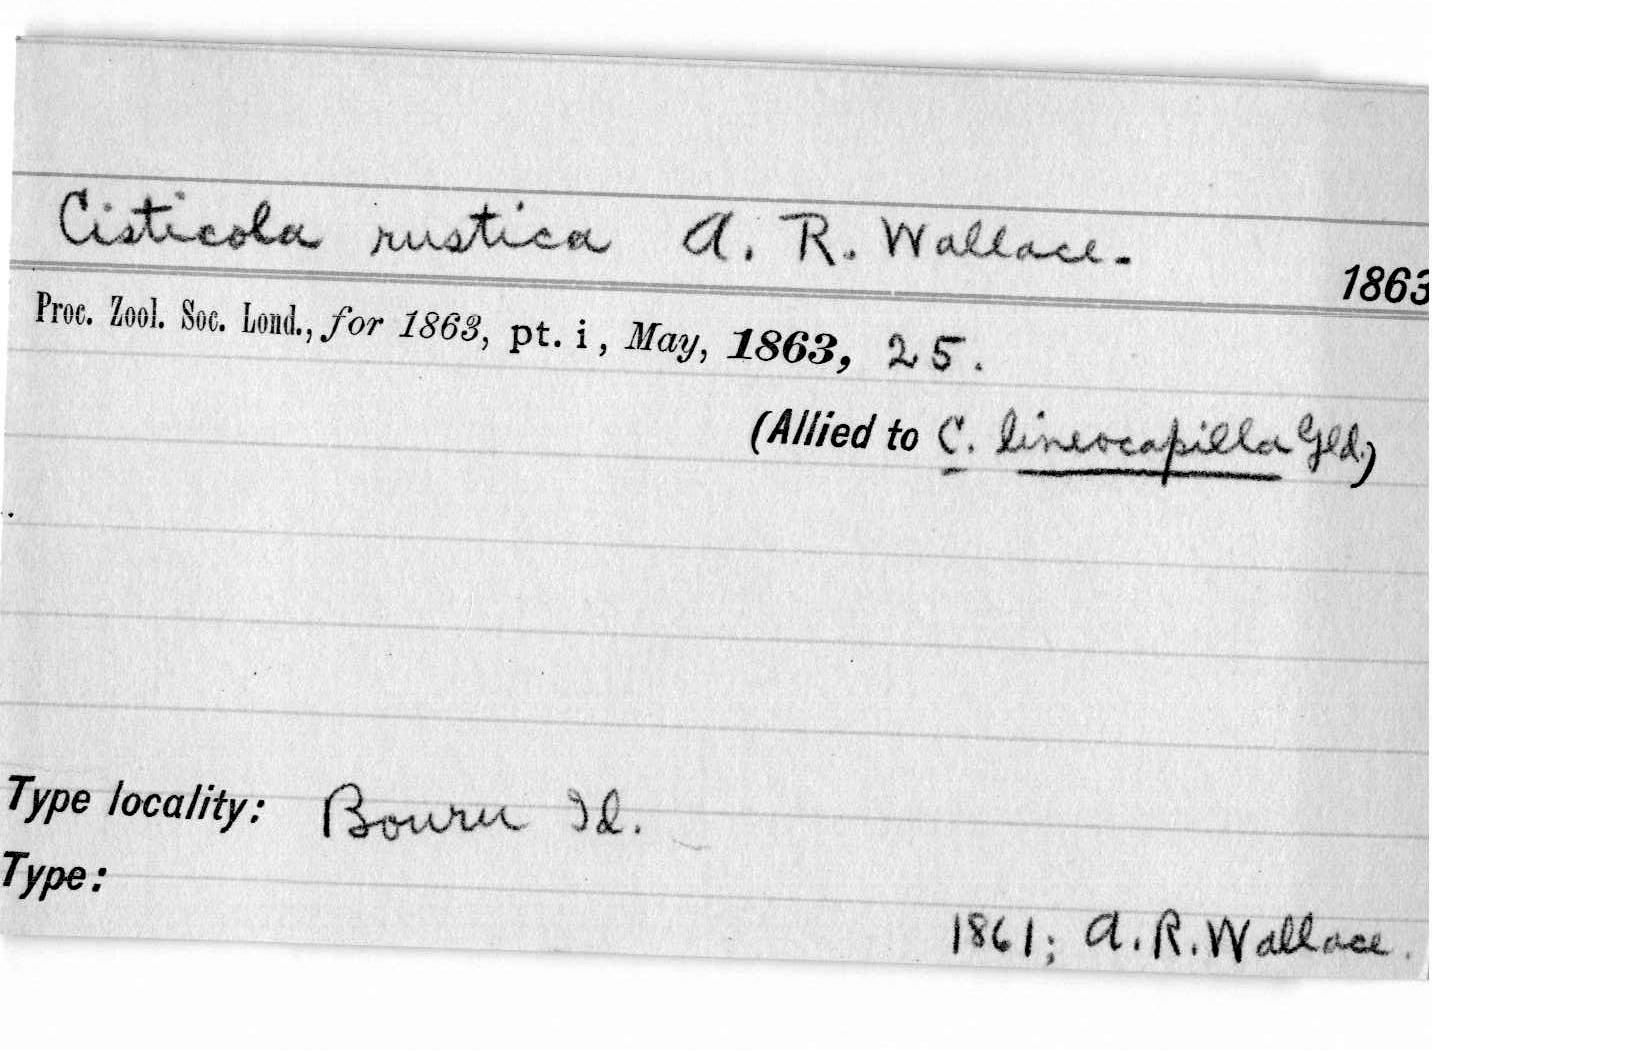 Cisticola rustica A. R. Wallace.
1863
Proc. Zool. Soc. Lond., for 1863, pt. i, May, 1863, 25.
(Allied to C. lineocapilla Gld.)
Type locality: Bouru Id.
Type:
1861; A. R. Wallace.